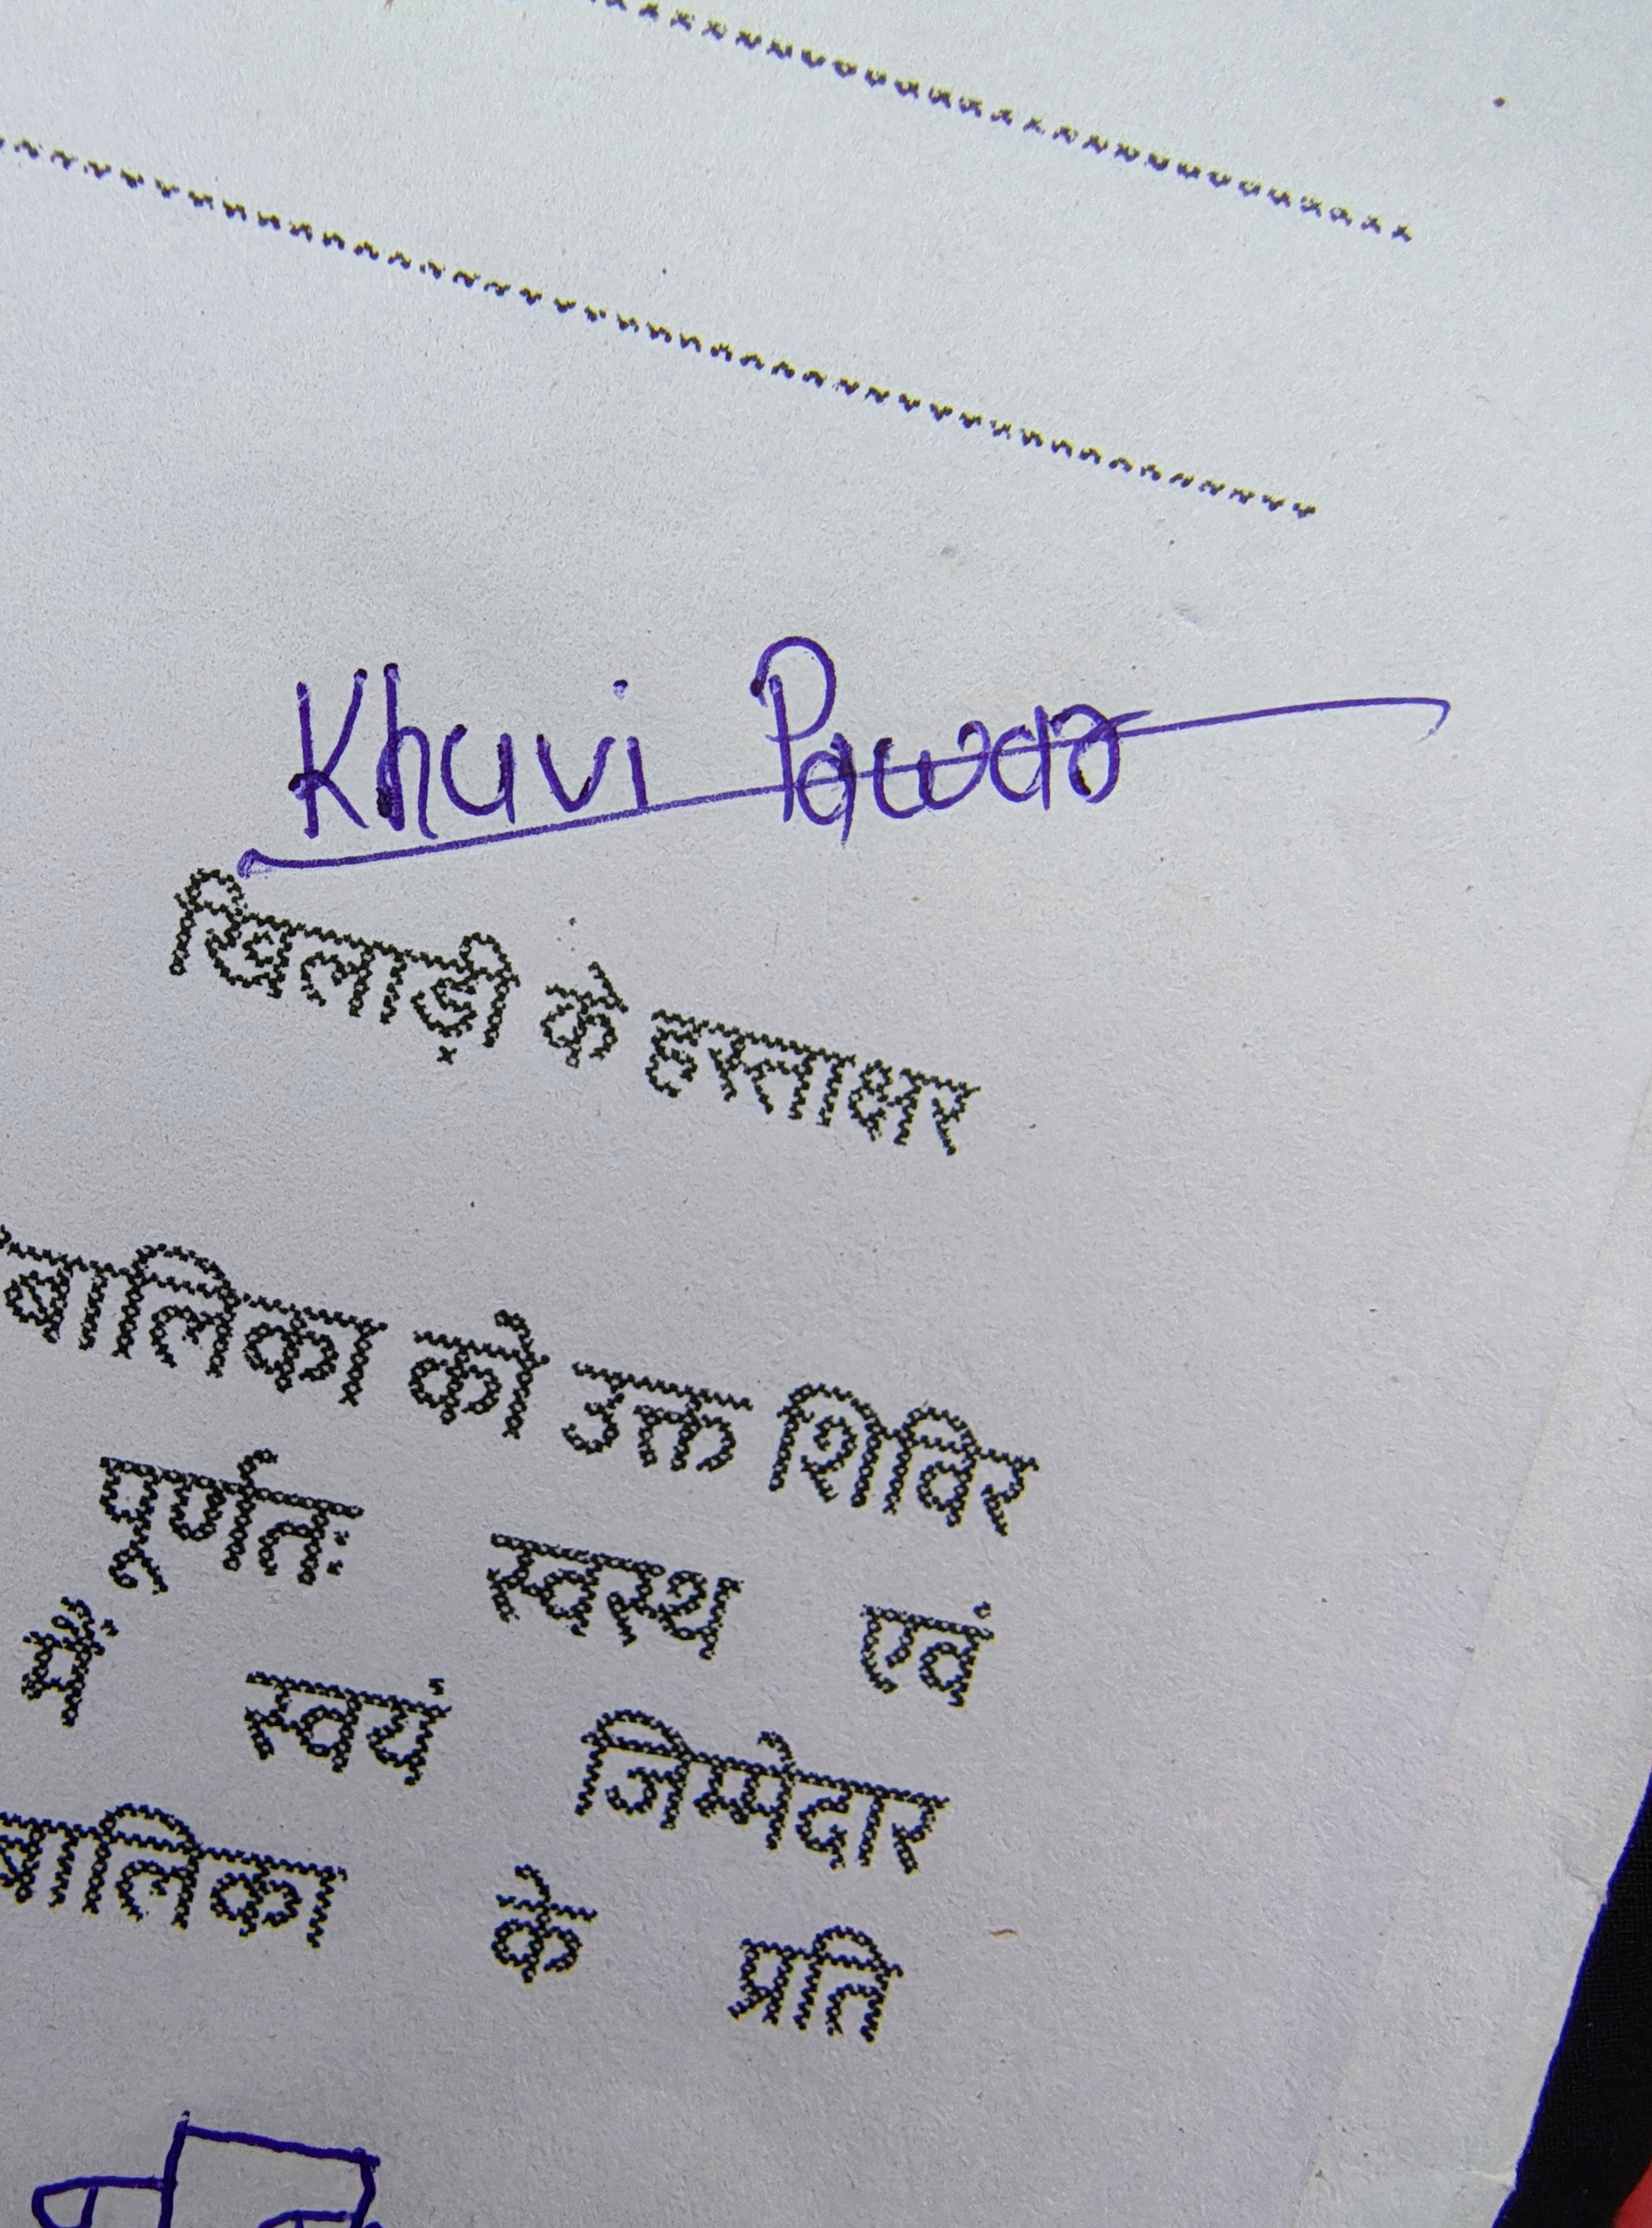 Khuvi Pawar
खिलाड़ी के हस्ताक्षर
बालिका को उक्त शिविर
पूर्णतः स्वस्थ एवं
में स्वयं जिम्मेदार
बालिका के प्रति